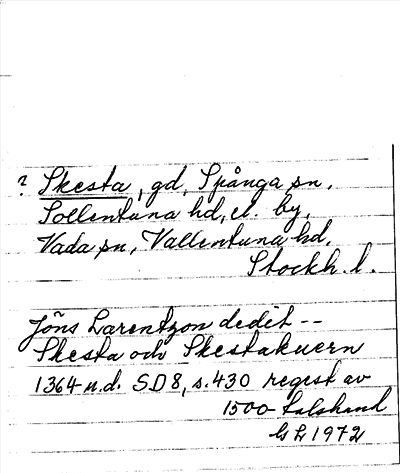 ? Skesta, gd, Spånga sn,
Sollentuna hd, el. by,
Vada sn, Vallentuna hd,
Stockh. l.
Jöns Larentzon dedit --
Skesta och Skestakuern
1364 u.d. SD 8, s. 430 regest av
1500-talshand
GL 1972